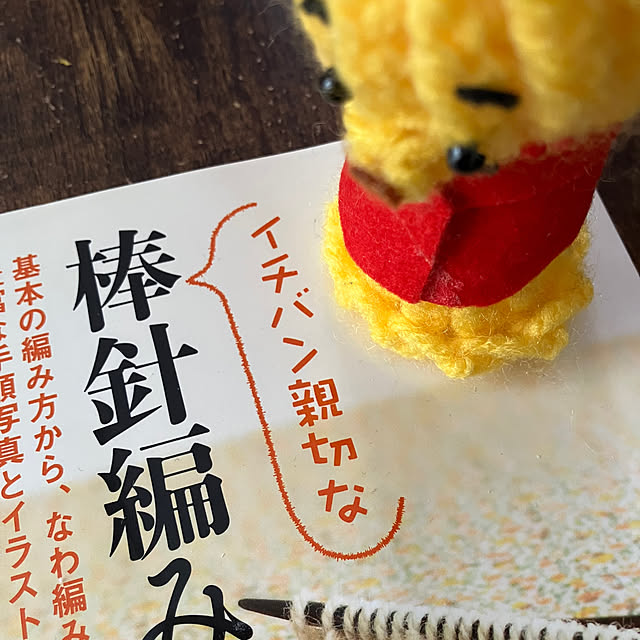 イチバン親切な
棒針編み
基本の編み方から、なわ編み
手順写真とイラスト